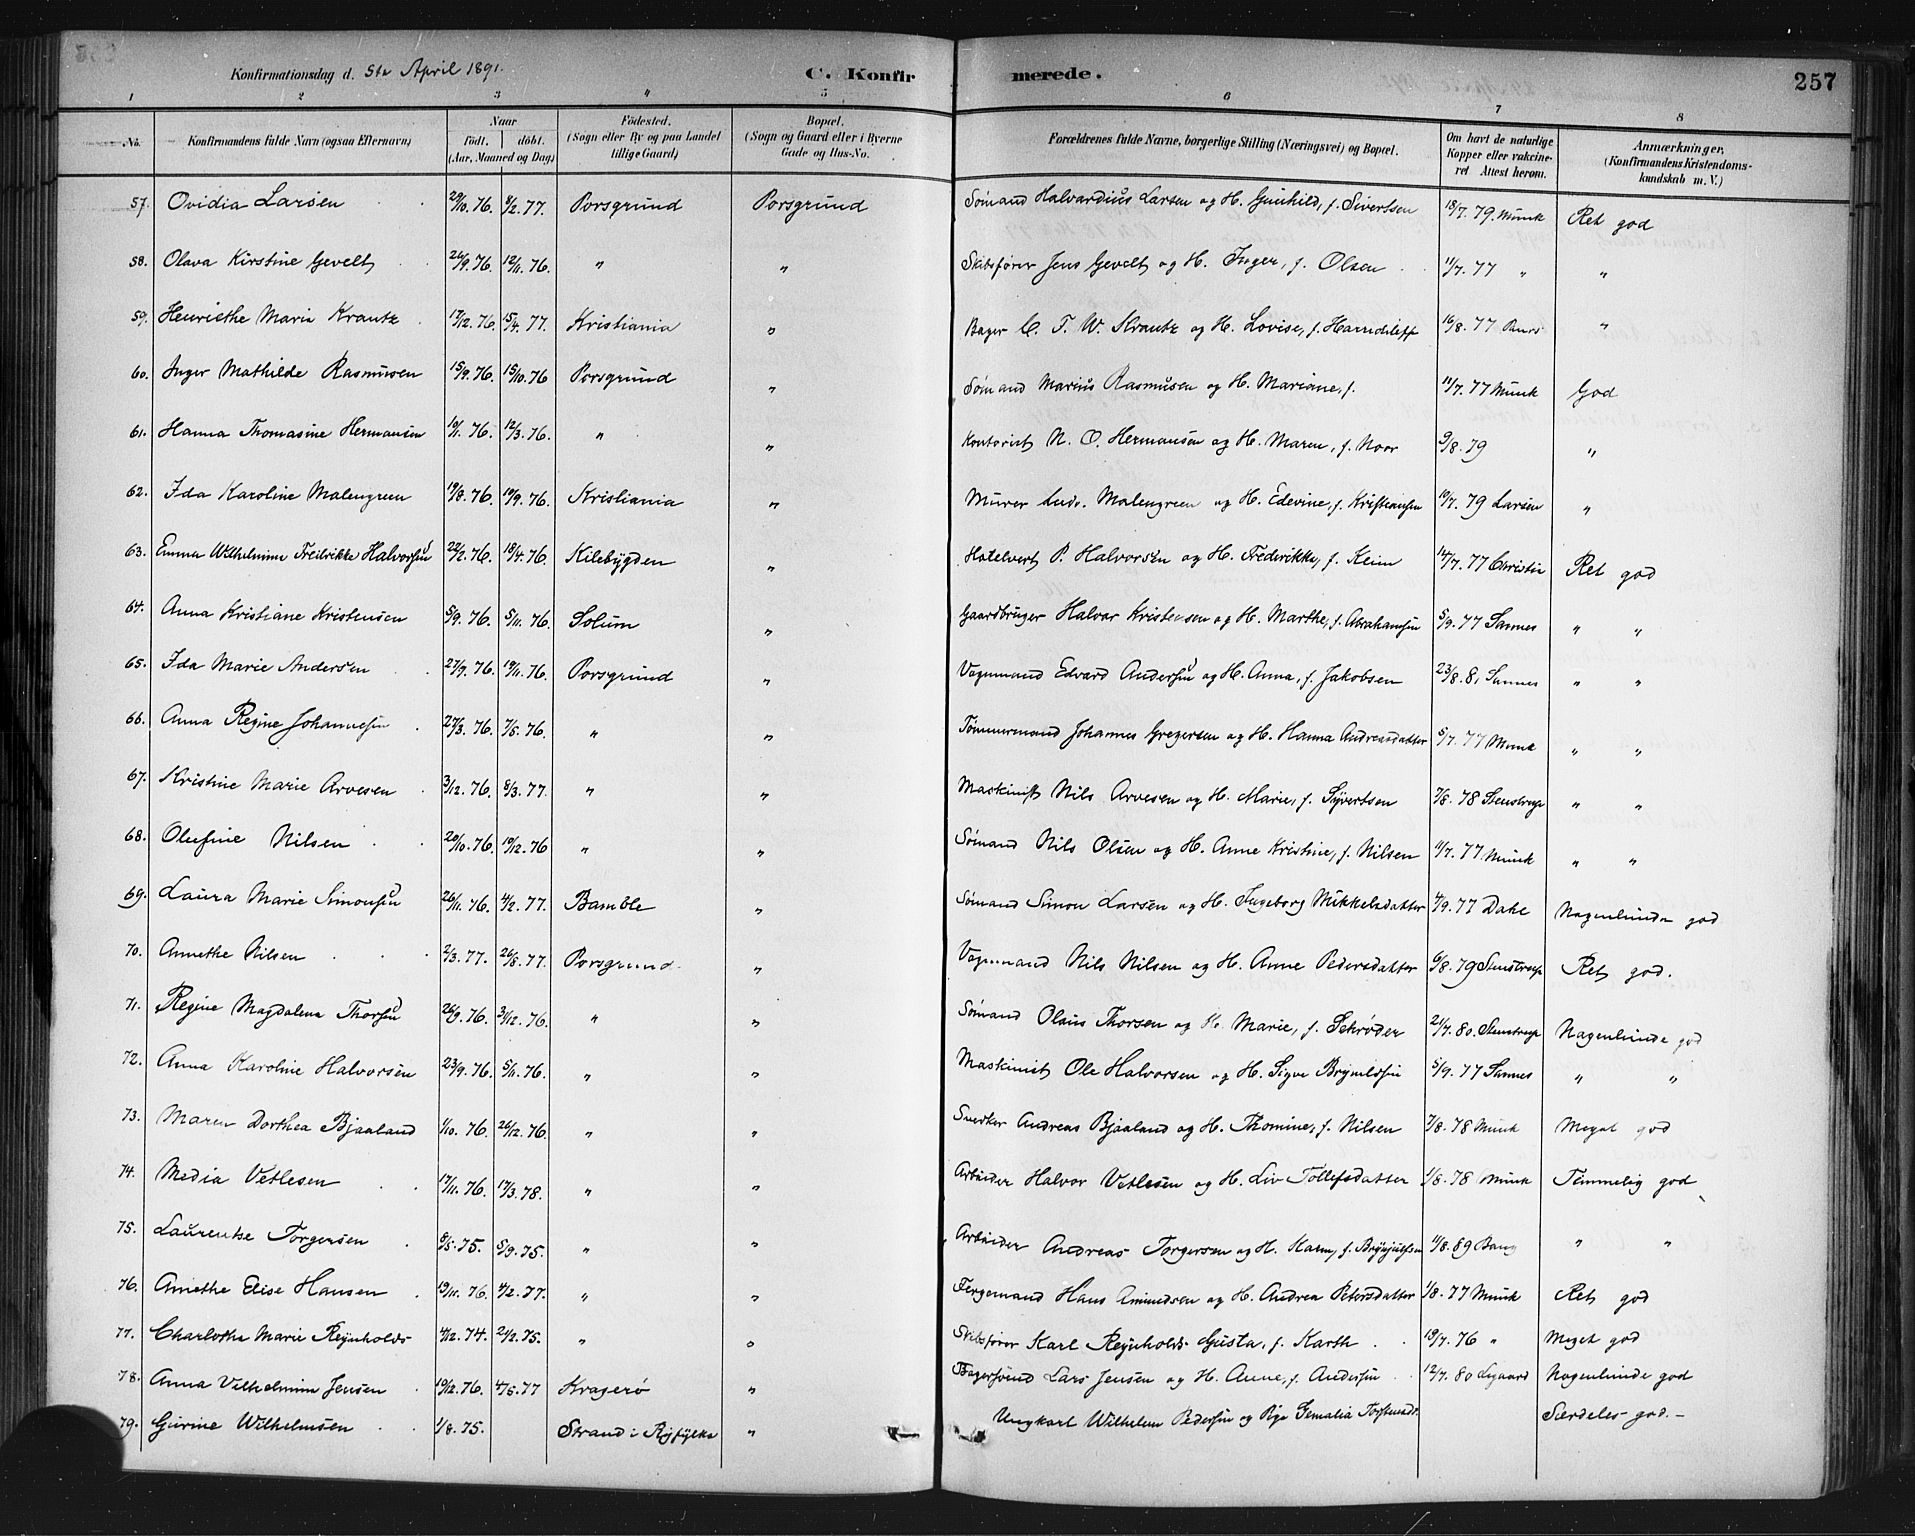 Konfirmationsdag d. 5te April 1891. C. Konfirmerede. 257
1 2 3 4 5 6 7 8
No. Konfirmandens fulde Navn (ogsaa Efternavn) Naar født. døbt. (Aar, Maaned og Dag) Fødested. (Sogn eller By og paa Landet tillige Gaard) Bopæl. (Sogn og Gaard eller i Byerne Gade og Hus-No. Forældrenes fulde Navne, borgerlige Stilling (Næringsvei) og Bopæl. Om havt de naturlige Kopper eller vakcineret Attest herom. Anmærkninger, (Konfirmandens Kristendomskundskab m. V.)
57. Ovidia Larsen 29/10.76. 4/2.77. Porsgrund Porsgrund Sømand Halvardius Larsen og H. Gunhild, f. Sivertsen 18/7.79 Munk Ret god
58. Olava Kirstine Gevelt 26/9.76. 12/11.76. " " Skibsfører Jens Gevelt og H. Inger, f. Olsen 11/7.77 " "
59. Henriethe Maria Krantz 17/12.76. 15/4.77. Kristiania " Bager C. F. W. Krantz og H. Lovise, f. 16/8.77 "
60. Inger Mathilde Rasmusen 15/9.76. 15/10.76 Porsgrund " Sømand Marius Rasmusen og H. Mariane, f. 11/7.77 Munk God
61. Hanna Thomasine Hermansen 10/1.76. 12/3.76. " " Kontorist N. O. Hermansen og H. Maren, f. Noor 9/8.79 "
62. Ida Karoline Malengreen 19/8.76. 19/9.76. Kristiania " Murer Ludv. Malengreen og H. Edevine, f. Kristiansen 10/7.79 Larsen "
63. Emma Wilhelmine Fredrikke Halvorsen 22/2.76. 18/4.76. Kilebygden " Hotelvert P. Halvorsen og H. Frederikke, f. Keim 14/7.77 Christie Ret god
64. Anna Kristiane Kristensen 5/9.76. 5/11.76. Solum " Gaardbruger Halvor Kristensen og H. Marthe, f. Abrahamsen 5/9.77 Sannes " "
65. Ida Marie Andersen 27/9.76. 19/11.76. Porsgrund " Vognmand Edvard Andersen og H. Anna, f. Jakobsen 23/8.81 Sannes " "
66. Anna Regine Johannesen 27/3.76. 7/5.76. " " Tømmermand Johannes Gregersen og H. Hanna Andreasdatter 5/7.77 Munk " "
67. Kristine Marie Arvesen 3/12.76. 8/3.77. " " Maskinist Nils Arvesen og H. Marie, f. Syvertsen 7/8.78 Stenstrup " "
68. Olufine Nilsen 20/10.76. 10/12.76 " " Sømand Nils Olsen og H. Anne Kristine, f. Nilsen 11/7.77 Munk " "
69. Laura Marie Simonsen 26/11.76. 4/2.77. Bamble " Sømand Simon Larsen og H. Ingeborg Mikkelsdatter 4/9.77 Dahl Nogenlunde god
70. Annethe Nilsen 2/3.77. 26/8.77. Porsgrund " Vognmand Nils Nilsen og H. Anne Pedersdatter 6/8.79 Stenstrup Ret god.
71. Regine Magdalena Thorsen 26/9.76. 31/12.76. " " Sømand Olaus Thorsen og H. Marie, f. Schrøder 21/7.80. Stenstrup Nogenlunde god
72. Anna Karoline Halvorsen 23/9.76. 5/11.76. " " Maskinist Ole Halvorsen og H. Signe Brynildsen 5/9.77 Sannes " "
73. Maren Dorthea Bjaaland 1/10.76. 26/12.76. " " Snedker Andreas Bjaaland og H. Thomine, f. Nilsen 7/8.78 Munk Meget god
74. Media Vetlesen 17/11.76. 17/3.78. " " Arbeider Halvor Vetlesen og H. Liv Tollefsdatter 1/8.78 Munk Temmelig god
75. Laurentse Torgersen 8/5.75. 5/9.75. " " Arbeider Andreas Torgersen og H. Karen, f. Brynjulfsen 11/8.89 Bang " "
76. Anethe Elise Hansen 19/11.76. 4/2.77. " " Fergemand Hans Amundsen og H. Andrea Petersdatter 1/8.77 Munk Ret god
77. Charlothe Marie Reynholds 4/12.74. 2/12.75. " " Skibsfører Karl Reynholds Gusta, f. Karth 19/7.76 " Meget god
78. Anna Vilhelmine Jensen 19/12.76. 4/5.77 Kragerø " Bagersvend Lars Jensen og H. Anne, f. Andersen 12/7.80 Lygaard Nogenlunde god
79. Gurine Wilhelmsen 1/8.75. Strand i Ryfylke " Ungkarl Wilhelm Pedersen og Pige Gemalia Torstensdt. Særdeles god.-